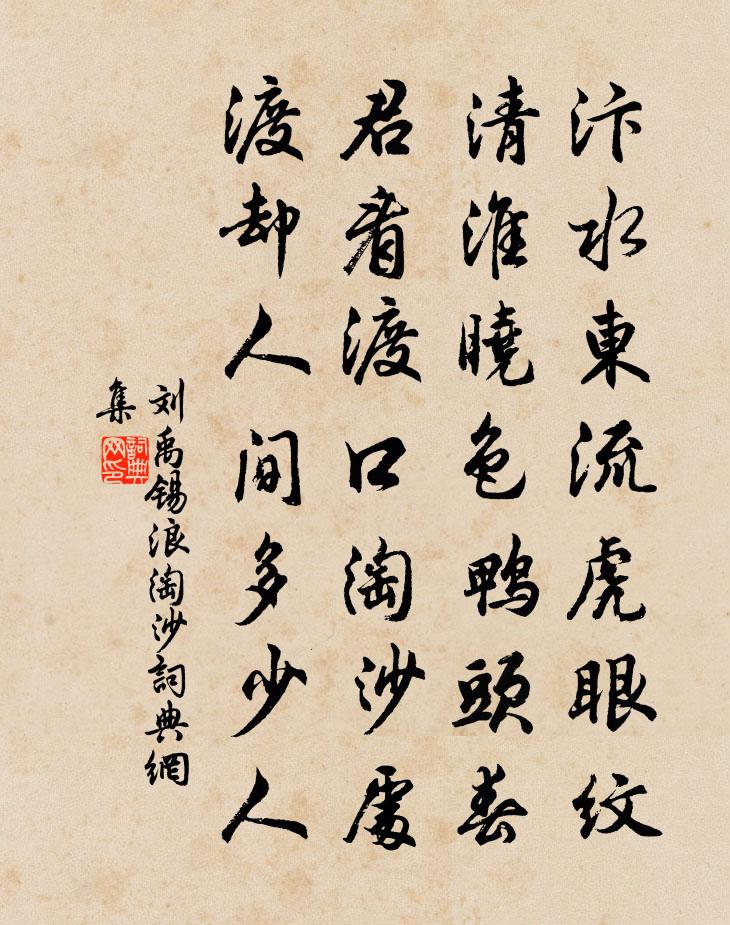 汴水東流虎眼紋
清淮曉色鴨頭春
君看渡口淘沙處
渡却人间多少人
刘禹锡浪淘沙詞典網
集
詞典网印